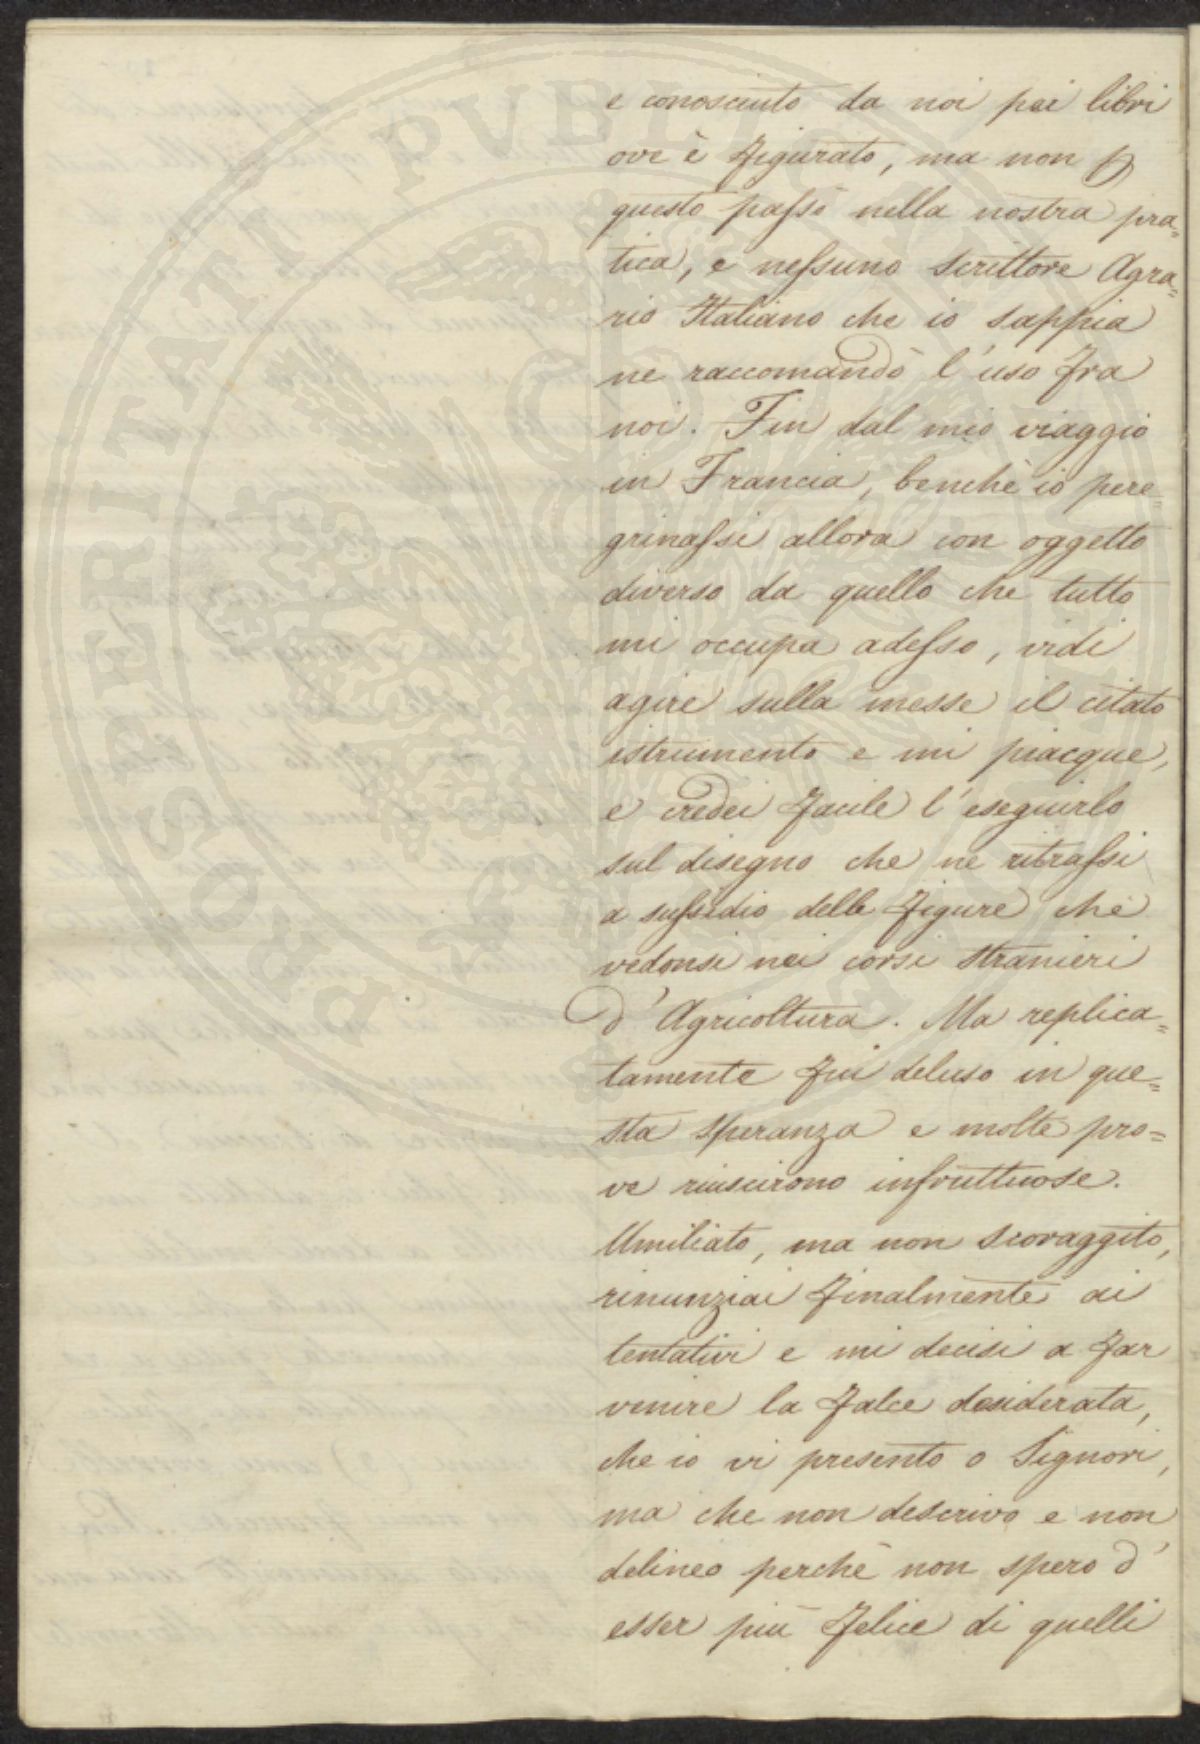 e conosciuto da noi pei libri
ove è figurato, ma non p
questo passò nella nostra pra=
tica, e nessuno scrittore Agra=
rio Italiano che io sappia
ne raccomandò l'uso fra
noi. Fin dal mio viaggio
in Francia, benchè io pere=
grinassi allora con oggetto
diverso da quello che tutto
mi occupa adesso, vidi
agire sulla messe il citato
istrumento e mi piacque,
e credei facile l'eseguirlo
sul disegno che ne ritrassi
a sussidio delle figure che
vedonsi nei corsi stranieri
d'Agricoltura. Ma replica=
tamente fui deluso in que=
sta speranza e molte pro=
ve riuscirono infruttuose.
Umiliato, ma non scoraggito,
rinunziai finalmente ai
tentativi e mi decisi a far
venire la falce desiderata,
che io vi presento o Signori,
ma che non descrivo e non
delineo perchè non spero d'
esser più felice di quelli
PROSPERITATI PVBLICAE